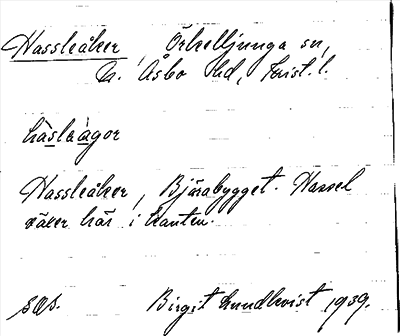 Hassleåker, Örkelljunga sn,
N. Åsbo hd, Krist. l.
hasleågor
Hassleåker, Bjärabygget. Hassel
växer här i kanten.
sås.
Birgit Lundkvist 1939.